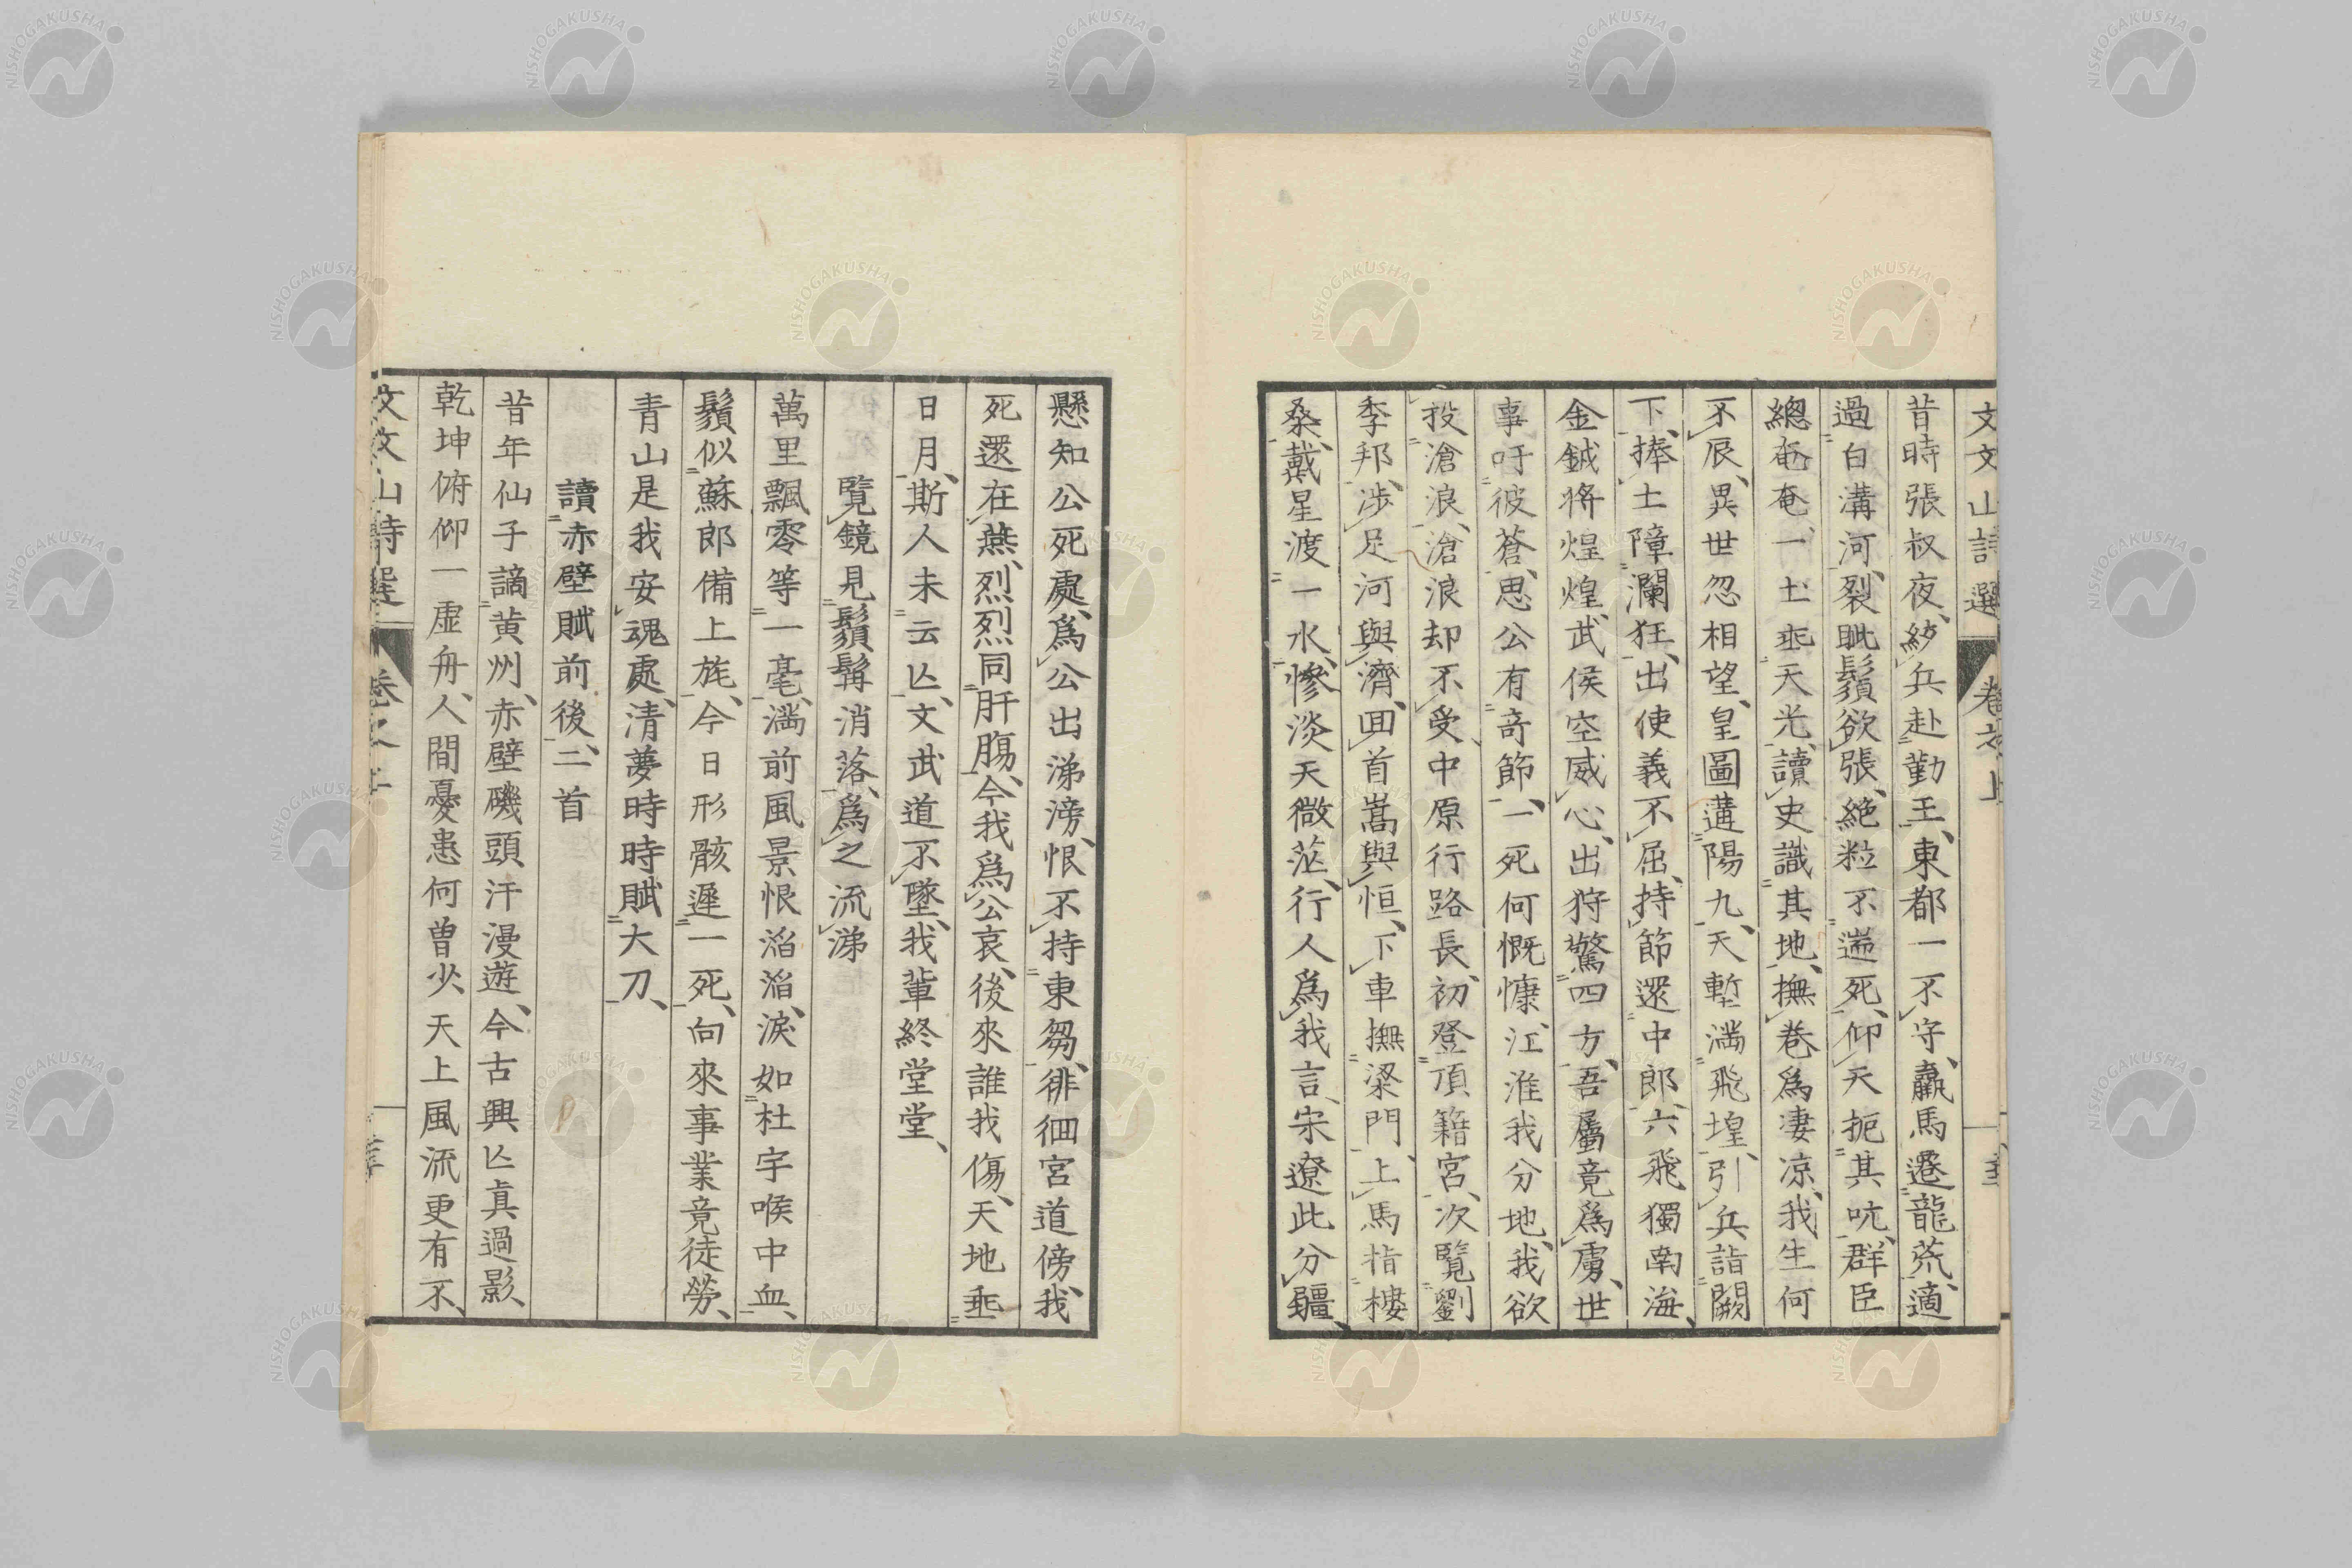 文文山詩選 卷之上
昔時張叔夜、紛兵赴勤王、東都一不守、羸馬遷龍荒、適
過白溝河、裂眦鬚欲張、絶粒不遄死、仰天扼其吭、群臣
總奄奄、一土乖天光、讀史識其地、撫巻爲凄凉、我生何
不辰、異世忽相望、皇圖遘陽九、天塹満飛煌、引兵詣闕
下、捧土障瀾狂、出使義不屈、持節還中郎、六飛獨南海、
金鉞將煌煌、武侯空威心、出狩驚四方、吾屬竟爲虜、世
事吁彼蒼、思公有奇節、一死何慨慷、江淮我分地、我欲
投滄浪、滄浪却不受、中原行路長、初登項籍宮、次覽劉
季邦、渉足河與濟、回首嵩與恒、下車撫梁門、上馬指樓
桑、戴星渡一水、慘淡天微茫、行人爲我言、宋遼此分疆、
懸知公死處、爲公出涕滂、恨不持東芻、徘徊宮道傍、我
死還在燕、烈烈同肝膓、今我爲公哀、後來誰我傷、天地垂
日月、斯人未云亾、文武道不墜、我輩終堂堂、
覽鏡見鬚髯消落、爲之流涕
萬里飄零等一毫、満前風景恨滔滔、淚如杜宇喉中血、
鬚似蘇郎備上旄、今日形骸遲一死、向來事業竟徒勞、
青山是我安魂處、清夢時時賦大刀、
讀赤壁賦前後、二首
昔年仙子謫黄州、赤壁磯頭汗漫遊、今古興亾真過影、
乾坤俯仰一虚舟、人間憂患何曽少、天上風流更有不、
文文山詩選 卷之上
NISHOGAKUSHA